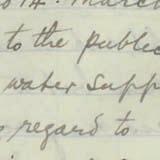 14. March
to the public
water supp
regard to